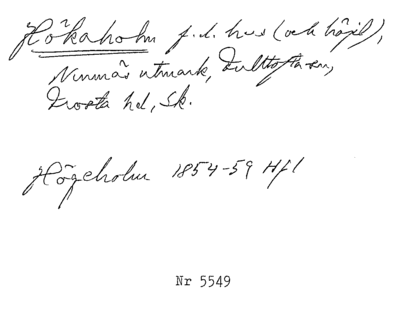 Hökaholm f.d. hus (och höjd),
Ninmäs utmark, Hulttofta sn,
Frosta hd, Sk.
Högeholm 1854-59 Hfl
Nr 5549